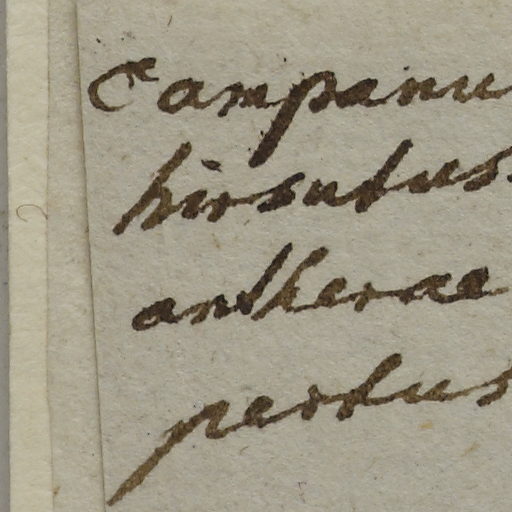 Campanu
hirsutus
antherae
pertus